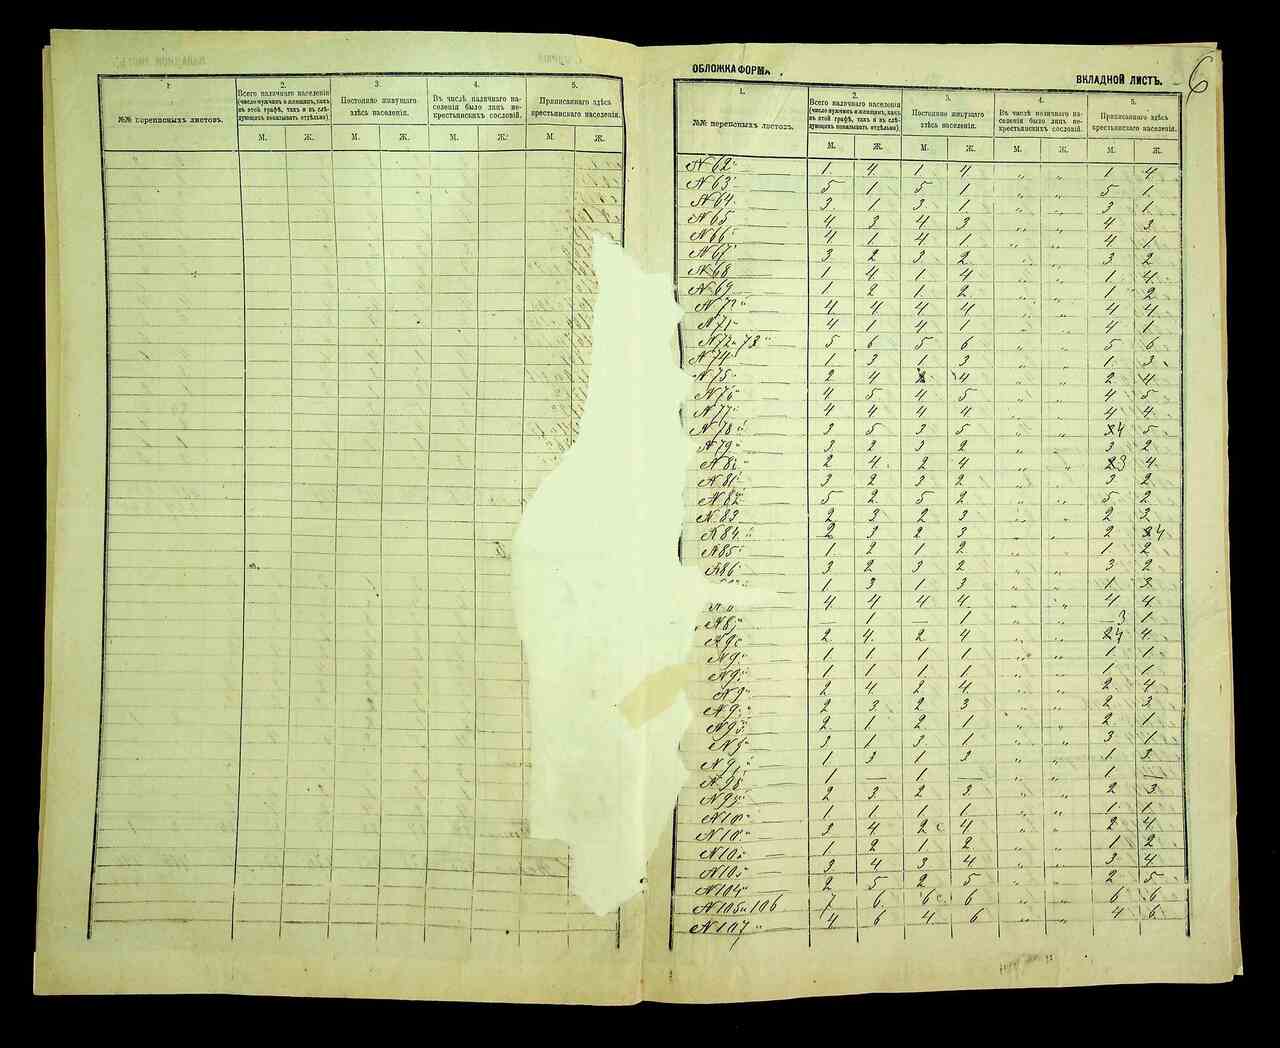 1.
2.
3.
4.
5.
№№ переписныхъ листовъ.
Всего наличнаго населенія (число мужчинъ и женщинъ, какъ въ этой графѣ, такъ и въ слѣдующихъ показывать отдѣльно).
Постоянно живущаго здѣсь населенія.
Въ числѣ наличнаго населенія было лицъ некрестьянскихъ сословій.
Приписаннаго здѣсь крестьянскаго населенія.
М. Ж. М. Ж. М. Ж. М. Ж.
ОБЛОЖКА ФОРМА
ВКЛАДНОЙ ЛИСТЪ.
6
1.
2.
3.
4.
5.
№№ переписныхъ листовъ.
Всего наличнаго населенія (число мужчинъ и женщинъ, какъ въ этой графѣ, такъ и въ слѣдующихъ показывать отдѣльно).
Постоянно живущаго здѣсь населенія.
Въ числѣ наличнаго населенія было лицъ некрестьянскихъ сословій.
Приписаннаго здѣсь крестьянскаго населенія.
М. Ж. М. Ж. М. Ж. М. Ж.
№ 62 1 4 1 4 „ „ 1 4
№ 63 5 1 5 1 „ „ 5 1
№ 64 3 1 3 1 „ „ 3 1
№ 65 4 3 4 3 „ „ 4 3
№ 66 4 1 4 1 „ „ 4 1
№ 67 3 2 3 2 „ „ 3 2
№ 68 1 4 1 4 „ „ 1 4
№ 69 1 2 1 2 „ „ 1 2
№ 4 4 4 4 „ „ 4 4
№ 71 4 1 4 1 „ „ 4 1
№ 72 и 73 5 6 5 6 „ „ 5 6
№ 74 1 3 1 3 „ „ 1 3
№ 75 2 4 4 „ „ 2 4
№ 76 4 5 4 5 „ „ 4 5
№ 77 4 4 4 4 „ „ 4 4
№ 78 3 5 3 5 „ „ 4 5
№ 79 3 2 3 2 „ „ 3 2
№ 2 4 2 4 „ „ 3 4
№ 81 3 2 3 2 „ „ 3 2
№ 82 5 2 5 2 „ „ 5 2
№ 83 2 3 2 3 „ „ 2 3
№ 84 2 3 2 3 „ „ 2 4
№ 85 1 2 1 2 „ „ 1 2
№ 86 3 2 3 2 „ „ 3 2
1 3 1 3 „ „ 1 3
4 4 4 4 „ „ 4 4
№ — 1 — 1 „ „ 3 1
№ 2 4 2 4 „ „ 4 4
№ 1 1 1 1 „ „ 1 1
№ 1 1 1 1 „ „ 1 1
№ 2 4 2 4 „ „ 2 4
№ 2 3 2 3 „ „ 2 3
№ 95 2 1 2 1 „ „ 2 1
№ 3 1 3 1 „ „ 3 1
№ 1 3 1 3 „ „ 1 3
№ 98 1 — 1 — „ „ 1 —
№ 99 2 3 2 3 „ „ 2 3
№ 1 1 1 1 „ „ 1 1
№ 3 4 2 4 „ „ 2 4
№ 1 2 1 2 „ „ 1 2
№ 3 4 3 4 „ „ 3 4
№ 104 2 5 2 5 „ „ 2 5
№ 105 и 106 7 6 6 6 „ „ 6 6
№ 107 4 6 4 6 „ „ 4 6